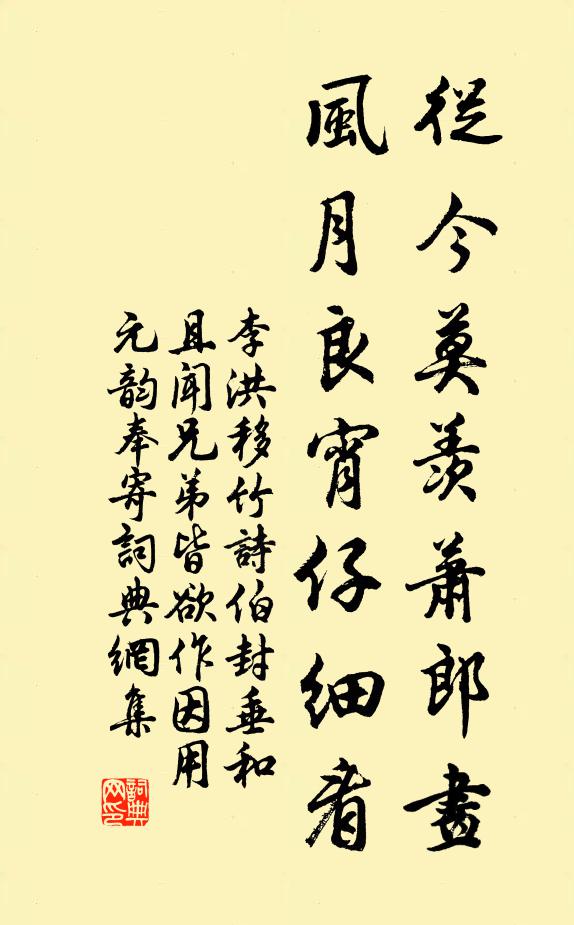 從今莫羨蕭郎畫
風月良宵仔細看
李洪移竹詩伯封垂和
且聞兄弟皆欲作因用
元韵奉寄詞典網集
詞典網印